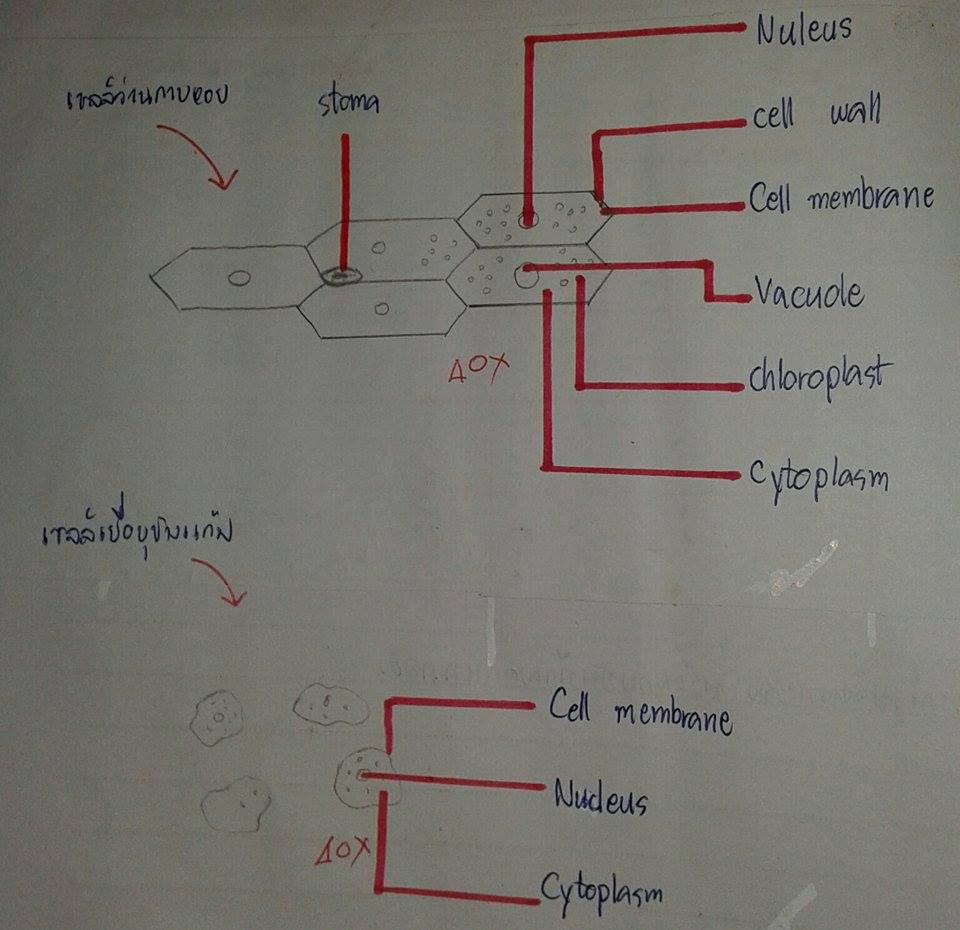 Nuleus
เซลล์ว่านกาบหอย
stoma
cell wall
Cell membrane
Vacuole
40X
chloroplast
Cytoplasm
เซลล์เยื่อบุข้างแก้ม
Cell membrane
Nucleus
40X
Cytoplasm